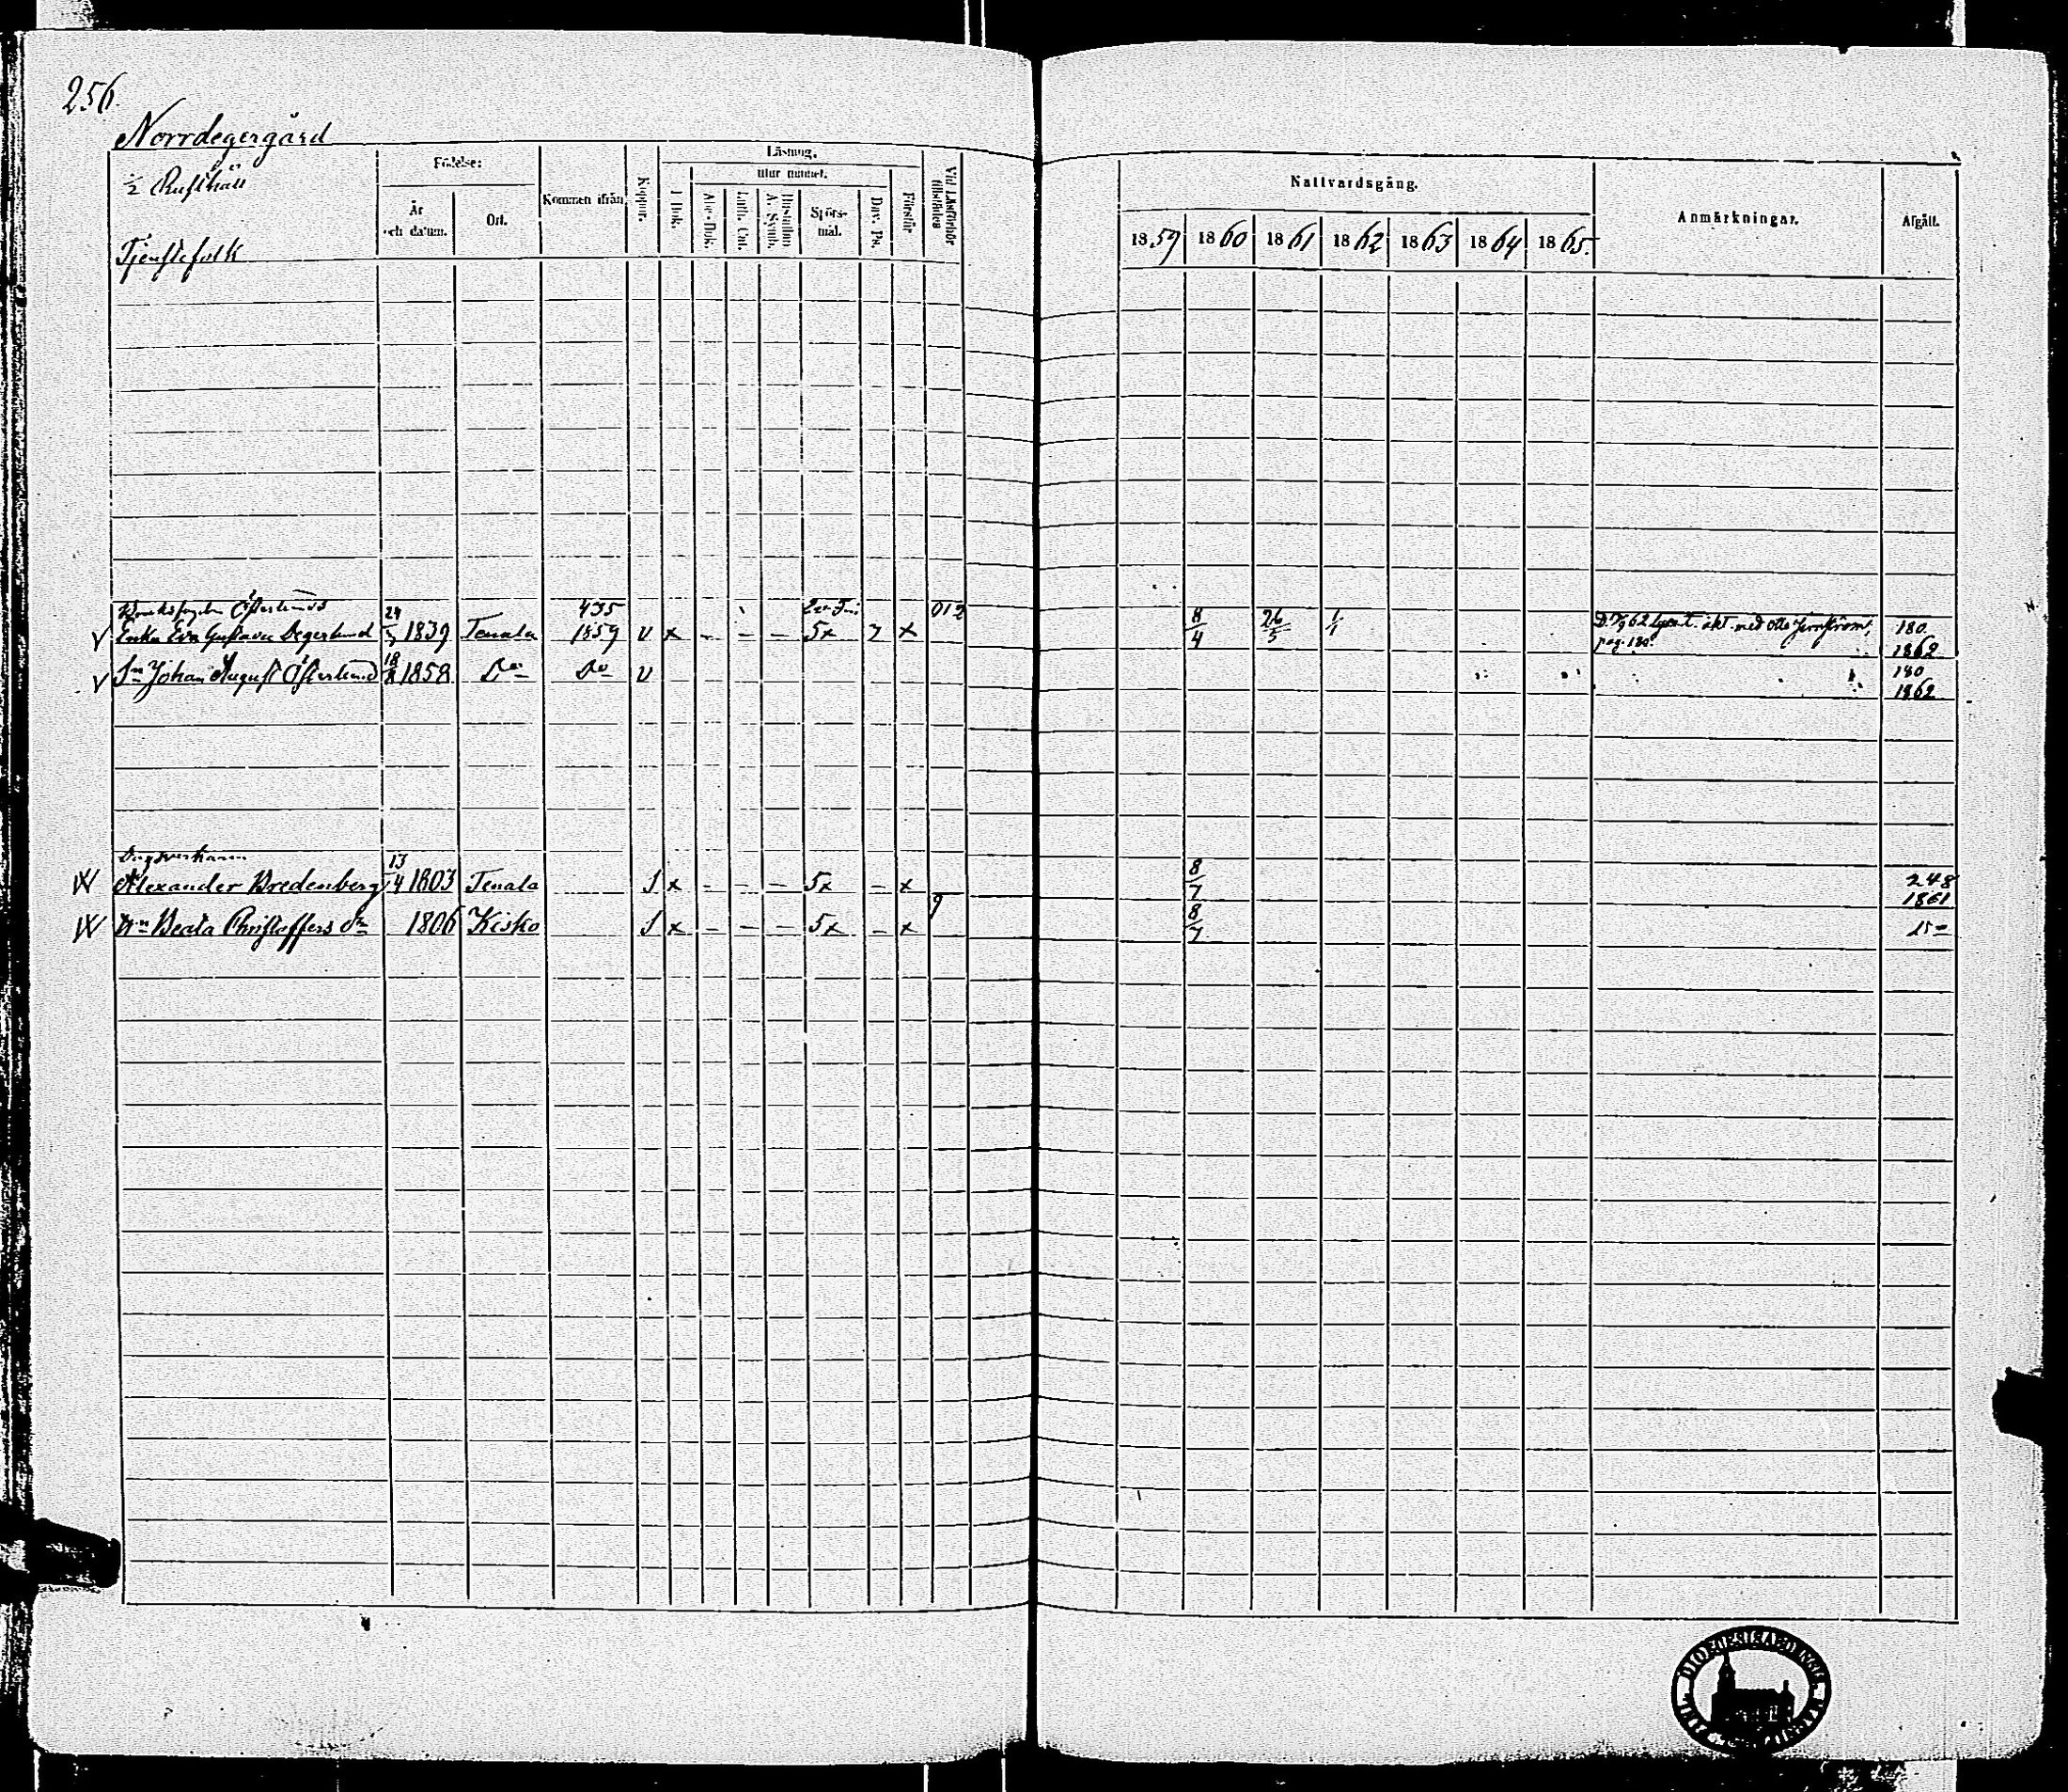 256.
Norrdegergård
½ Rusthåll
Tjenstefolk
Födelse:
År och datum.
Ort.
Kommen ifrån
Koppor.
Läsning.
I Bok.
utur minnet.
Abc-Bok.
Luth. Cat.
Hustaflan A. Symb.
Spörsmål.
Dav. Ps.
Förstår
Vid Läsförhör tillstädes
Nattvardsgång.
1859 1860 1861 1862 1863 1864 1865.
Anmärkningar.
Afgått.
Österlunds 435 012
v Enkan Eva Gustava Degerlund 24/5 1839 Tenala 1859 v x - - - 5x 7 x 8/4 26/5 1/1 62 med Otto Jernström, pag. 180. 180. 1862
v Sn Johan August Österlund 18/8 1858 Do Do v 180 1862
Dagsverkaren
Alexander Bredenberg 13/4 1803 Tenala S x - - - 5x - x 8/7 248 1861
Hn Beata Christoffers Dr 1806 Kisko S x - - - 5x - x 9 8/7